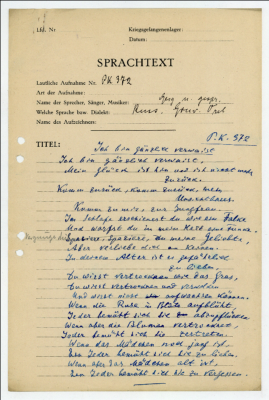 Lfd. Nr.
Kriegsgefangenenlager:
Datum:
SPRACHTEXT
Lautliche Aufnahme Nr. PK 372
Art der Aufnahme:
Name des Sprecher, Sänger, Musiker:
Welche Sprache bzw. Dialekt: Russ. Gouv.
Name des Aufzeichners:
P.K. 372
TITEL: Ich bin gänzlich verwaist
Ich bin gänzlich verwaist,
Mein Glück ist hin und ist nicht mehr
zurück.
Komm zurück, komm zurück, mein
Komm zu mir, zur Jungfrau.
Im Schlafe erschienst du wie ein Falke
Und warfst du in mein Herz eine Funke.
du meine Geliebte,
Aber verliebe dich an keinen.
In deinem Alter ist es gefährlich
zu lieben.
Du wirst vertrocknen wie das Gras,
Du wirst vertrocknen und verwelken
Und wirst nicht aufwachsen können.
Wenn die Rute in Blüte aufblüht,
Jeder bemüht sich sie abzupflücken
Wenn aber die Blumen vertrocknen
Jeder bemüht sich sie zu zertreten.
Wenn das Mädchen noch jung ist,
Ein Jeder bemüht sich sie zu lieben.
Wenn aber das Mädchen alt ist,
Ein Jeder bemüht sich sie zu vergessen.